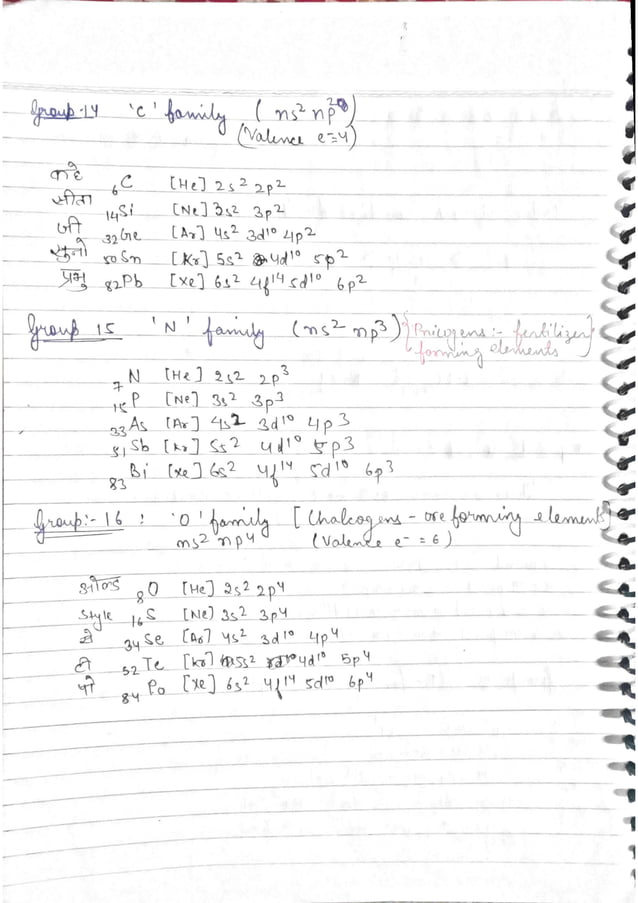 Group-14 'C' family (ns² np²)
(Valence e⁻=4)
काहे ₆C [He] 2s² 2p²
सीता ₁₄Si [Ne] 3s² 3p²
जी ₃₂Ge [Ar] 4s² 3d¹⁰ 4p²
सुनो ₅₀Sn [Kr] 5s² 4d¹⁰ 5p²
प्रभु ₈₂Pb [Xe] 6s² 4f¹⁴ 5d¹⁰ 6p²
Group 15 'N' family (ns² np³) {Pnicogens:- fertilizer
forming elements}
₇N [He] 2s² 2p³
₁₅P [Ne] 3s² 3p³
₃₃As [Ar] 4s² 3d¹⁰ 4p³
₅₁Sb [Kr] 5s² 4d¹⁰ 5p³
₈₃Bi [Xe] 6s² 4f¹⁴ 5d¹⁰ 6p³
Group:- 16 : 'O' family [Chalcogens - ore forming elements]
ns² np⁴ (Valence e⁻ = 6)
ओल्ड ₈O [He] 2s² 2p⁴
style ₁₆S [Ne] 3s² 3p⁴
से ₃₄Se [Ar] 4s² 3d¹⁰ 4p⁴
टी ₅₂Te [Kr] 5s² 4d¹⁰ 5p⁴
पो ₈₄Po [Xe] 6s² 4f¹⁴ 5d¹⁰ 6p⁴